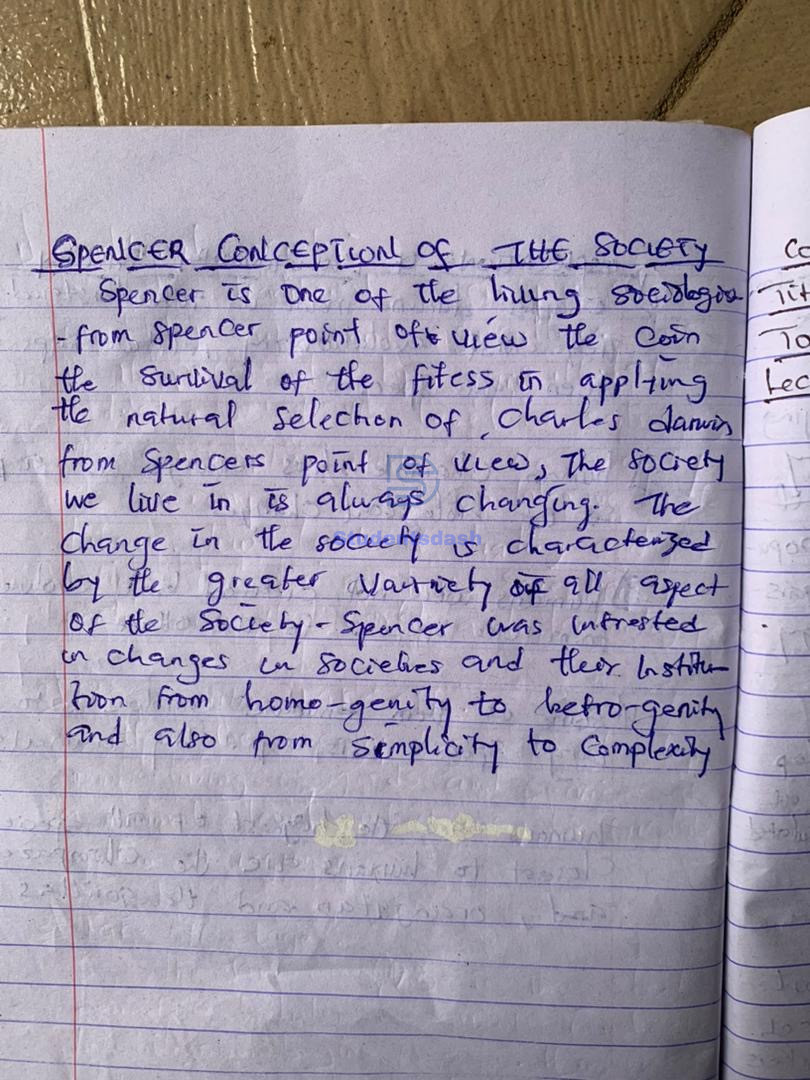 SPENCER CONCEPTION OF THE SOCIETY
Spencer is one of the living sociologis
- from spencer point of view the coin
the survival of the fitess in applying
the natural selection of charles darwin
from Spencers point of view, The society
we live in is always changing. The
change in the society is characterized
by the greater varriety of all aspect
of the Society - Spencer was intrested
in changes in societies and their institu-
tion from homo-genity to hetro-genity
and also from simplicity to complexity
Studentsdash
Co
Tit
To
Lec